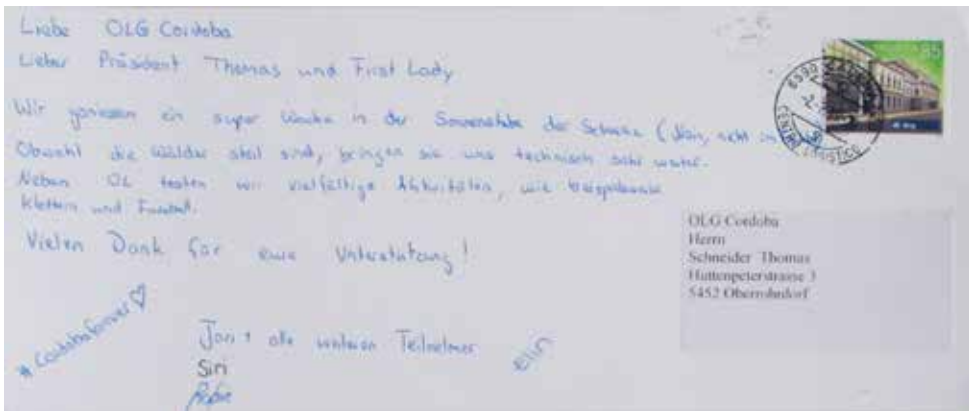 Liebe OLG Cordoba
Lieber Präsident Thomas und First Lady
Wir geniessen ein super Woche in der Sonnenstube der Schweiz (Nein, nicht im
Obwohl die Wälder steil sind, bringen sie uns technisch sehr weiter.
Neben OL testen wir vielfältige Aktivitäten, wie beispielsweise
Klettern und Fussball.
Vielen Dank für eure Unterstützung!
#cordobaforever♡
Jan + alle weiteren Teilnehmer
Siri
elin
HELVETIA 85
6590
CENTRO LOGISTICO
OLG Cordoba
Herrn
Schneider Thomas
Huttenpeterstrasse 3
5452 Oberrohrdorf